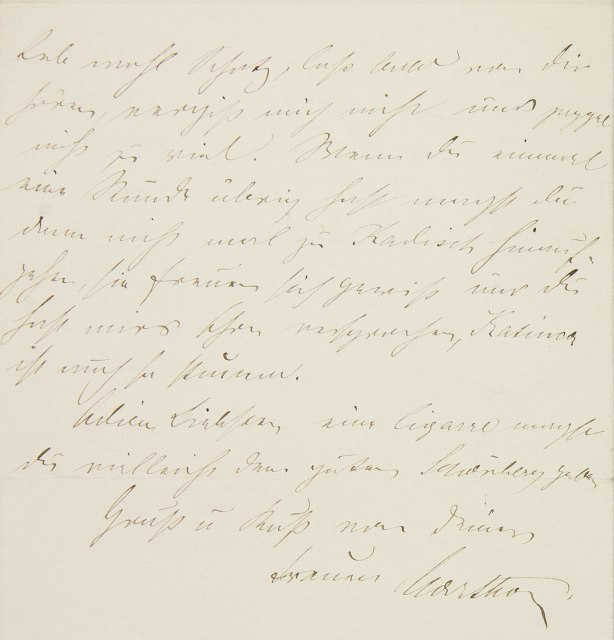 Leb wohl Schatz, laß bald von dir
hören, vergiß mich nicht und
nicht zu viel. Wenn du einmal
eine Stunde übrig hast magst du
denn nicht mal zu Kadisch hinauf-
gehen, sie freuen sich gewiß und du
hast mirs schon versprochen, Katinca
ist auch so
Adieu Liebster, eine Cigarre magst
du vielleicht dem guten Schönberg geben
Gruß u Kuß von deiner
treuen Martha.